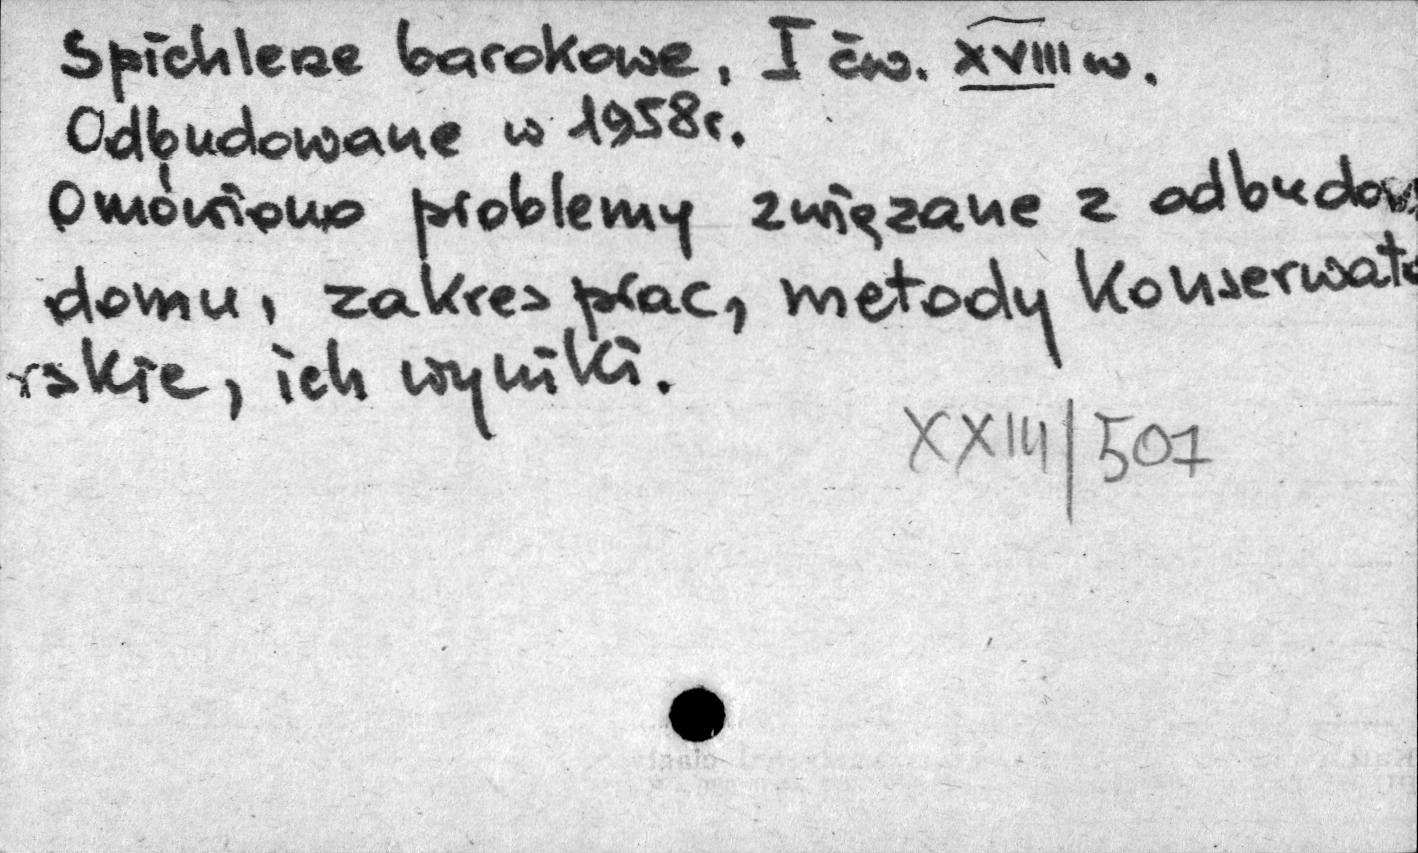 Spichlerze barokowe, I ćw. XVIII w.
Odbudowane w 1958r.
Omówiono problemy związane z odbudow
domu, zakres prac, metody konserwato
rskie, ich wyniki.
XXIII/501